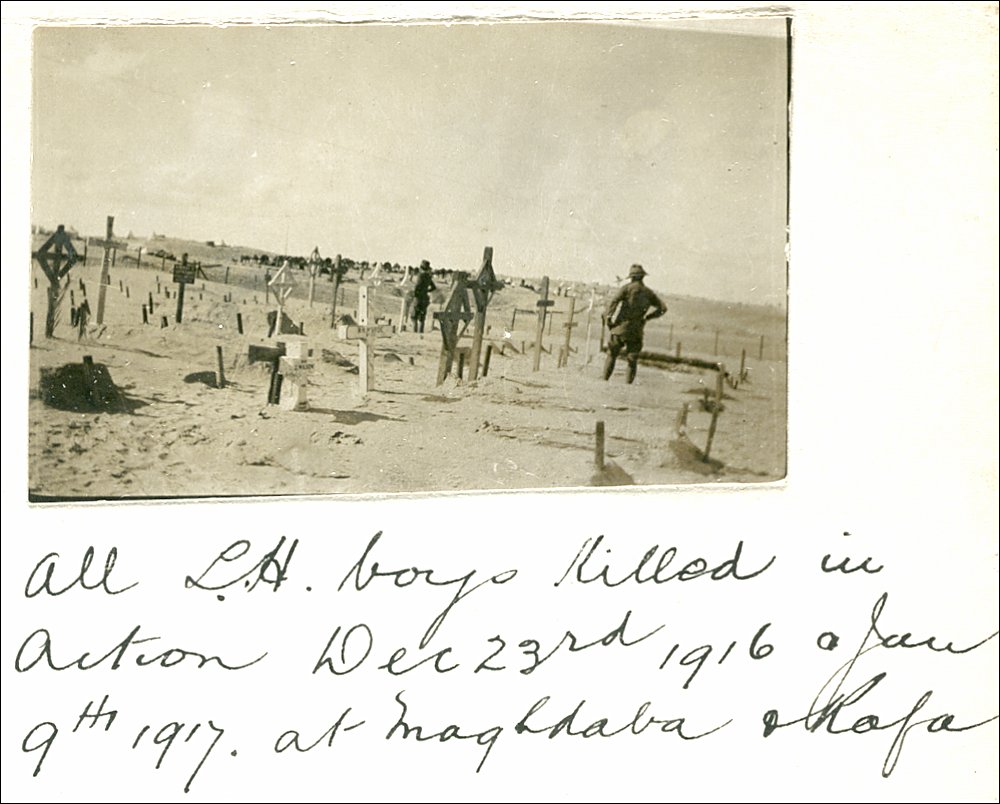 All L.H. boys Killed in
Action Dec 23rd 1916 & Jan
9TH 1917. at Maghdaba & Rafa